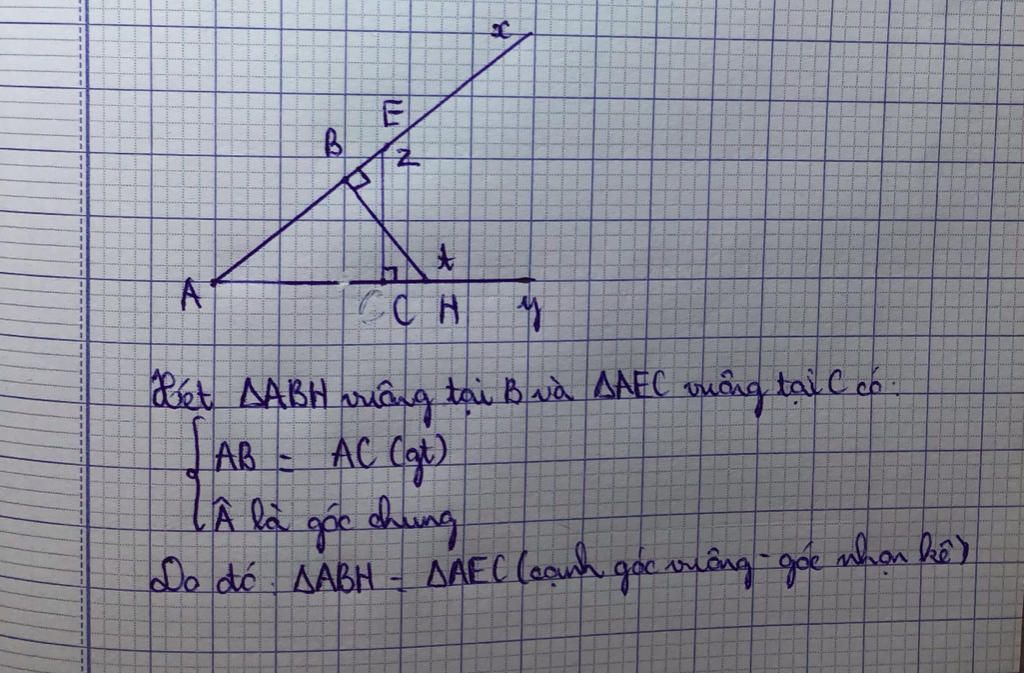 x
E
B
z
A
t
C H y
Xét ΔABH vuông tại B và ΔAEC vuông tại C có:
AB = AC (gt)
Â là góc chung
Do đó: ΔABH = ΔAEC (cạnh góc vuông - góc nhọn kề)